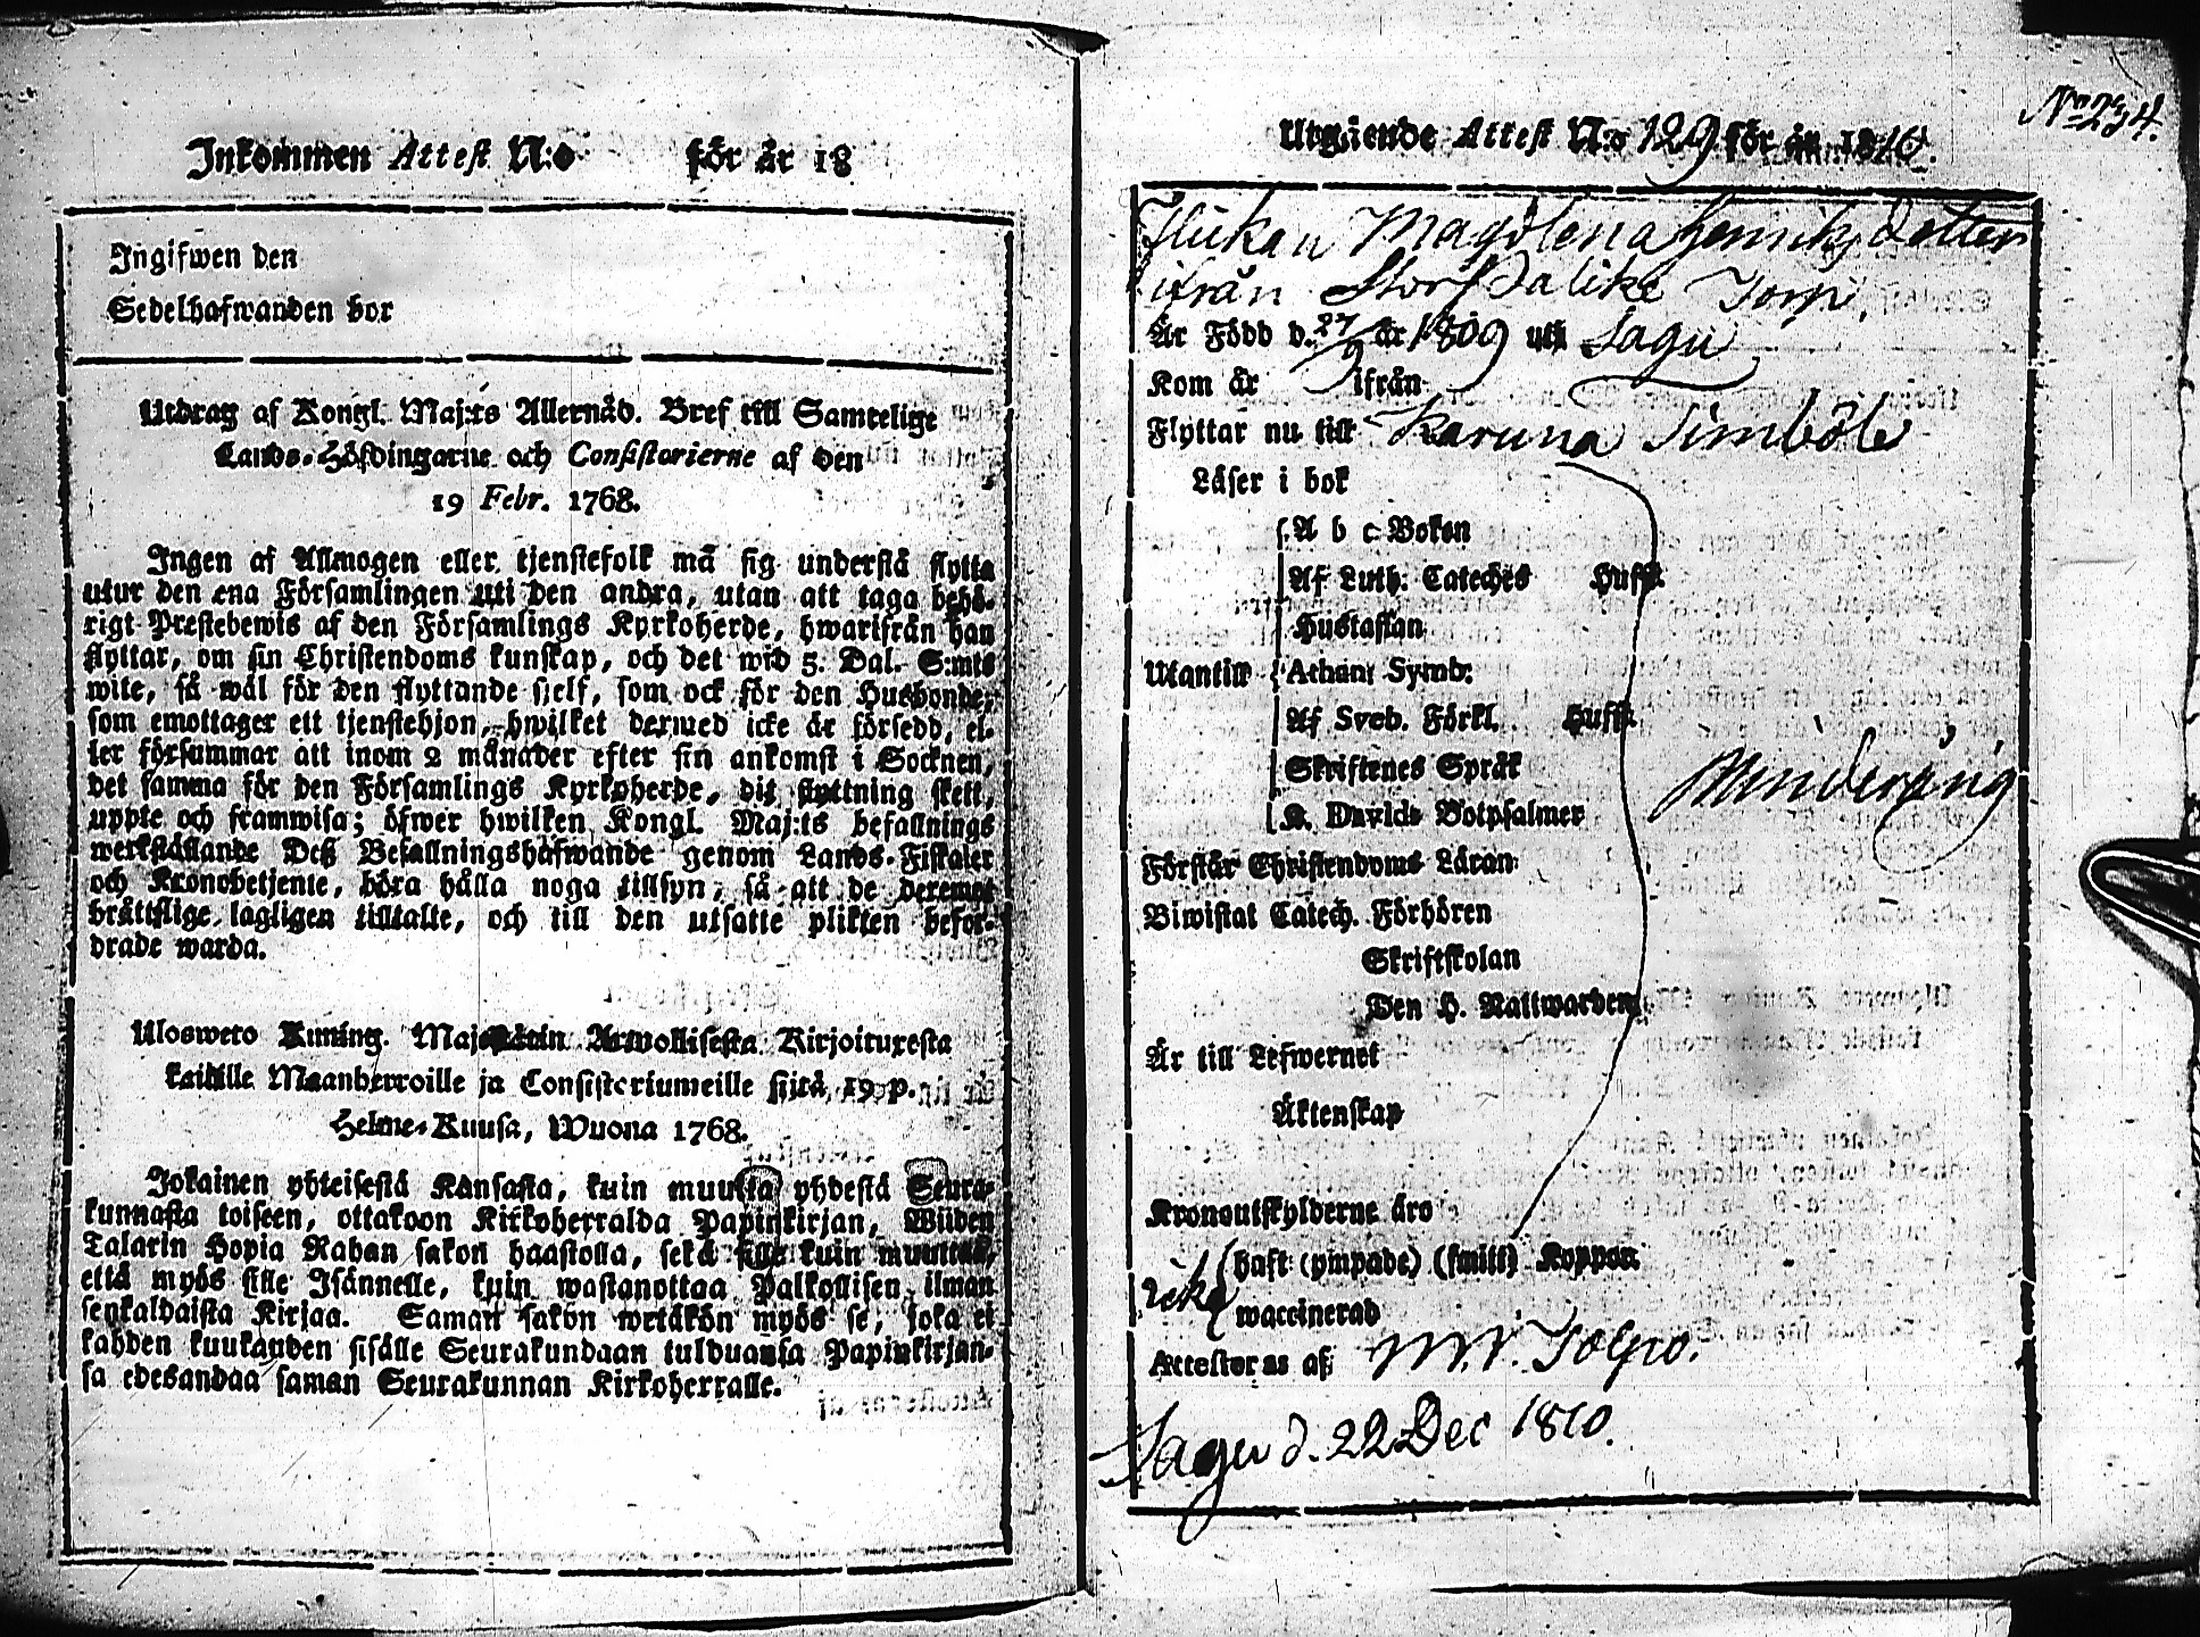 Inkommen Attest N:o för år 18
Ingifwen den
Sedelhafwanden bor
Utdrag af Kongl. Maj:ts Allernåd. Bref till Samtelige
Lands-Höfdingarne och Consistorierne af den
19 Febr. 1768.
Ingen af Allmogen eller tjenstefolk må sig understå flytta
utur den ena Församlingen uti den andra, utan att taga behö-
rigt Prestebewis af den Församlings Kyrkoherde, hwarifrån han
flyttar, om sin Christendoms kunskap, och det wid 5. Dal. S:mts
wite, så wäl för den flyttande sjelf, som ock för den Husbonde,
som emottager ett tjenstehjon, hwilket dermed icke är försedd, el-
ler försummar att inom 2 månader efter sin ankomst i Socknen,
det samma för den Församlings Kyrkoherde, dit flyttning skett,
uppte och framwisa; öfwer hwilken Kongl. Maj:ts befallnings
werkställande Deß Befallningshafwande genom Lands-Fiskaler
och Kronobetjente, böra hålla noga tillsyn, så att de deremot
bråttslige lagligen tilltalte, och till den utsatte plikten befor-
drade warda.
Ulosweto Kuning. Majestätin Armollisesta Kirjoituxesta
kaikille Maanherroille ja Consistoriumeille siitä, 19 p.
Helme-Kuusa, Wuona 1768.
Jokainen yhteisestä Kansasta, kuin muutta yhdestä Seura-
kunnasta toiseen, ottakoon Kirkoherralda Papinkirjan, Wiiden
Talarin Hopia Rahan sakon haastolla, sekä sille kuin muuttaa,
että myös sille Isännelle, kuin wastanottaa Palkollisen ilman
senkaldaista Kirjaa. Saman sakon wetäkön myös se, joka ei
kahden kuukauden sisälle Seurakundaan tulduansa Papinkirjan-
sa edesandaa saman Seurakunnan Kirkoherralle.
Utgående Attest N:o 129 för år 1810.
Flickan Magdlena Henriks dotter
ifrån Stor Palike Torp.
Är Född d. 27/9 år 1809 uti Sagu
Kom år ifrån
Flyttar nu till Karuna Simböle
Läser i bok
A b c Boken
Af Luth. Cateches Hufst.
Hustaflan
Utantill Athan: Symb:
Af Sveb. Förkl. Hufst.
Skriftenes Språk
K. Davids Botpsalmer
Minderårig
Förstår Christendoms Läran
Biwistat Catech. Förhören
Skriftskolan
Den H. Nattwarden
Är till Lefwernet
Äktenskap
Kronoutskylderne äro
icke haft (ympade) (smitt) Koppor
waccinerad
Attesteras af
Sagu d. 22 Dec 1810.